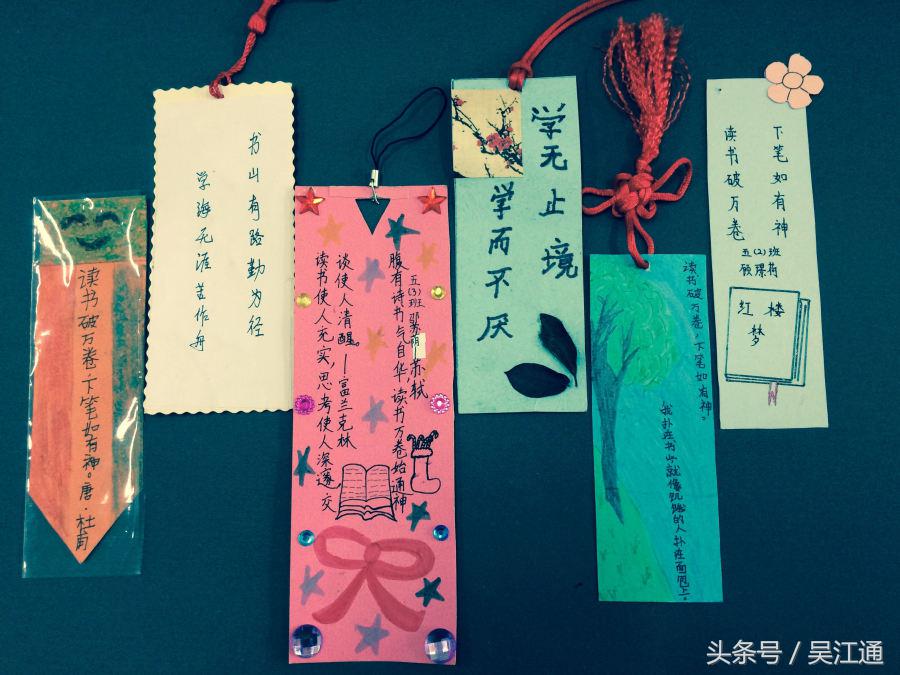 读书破万卷,下笔如有神。唐·杜甫
书山有路勤为径
学海无涯苦作舟
五(3)班
腹有诗书气自华,读书万卷始通神
——苏轼
读书使人充实,思考使人深邃,交
谈使人清醒。——富兰克林
学无止境
学而不厌
读书破万卷,下笔如有神。
我扑在书上就像饥饿的人扑在面包上。
下笔如有神
读书破万卷
五(2)班
红楼
梦
头条号/吴江通